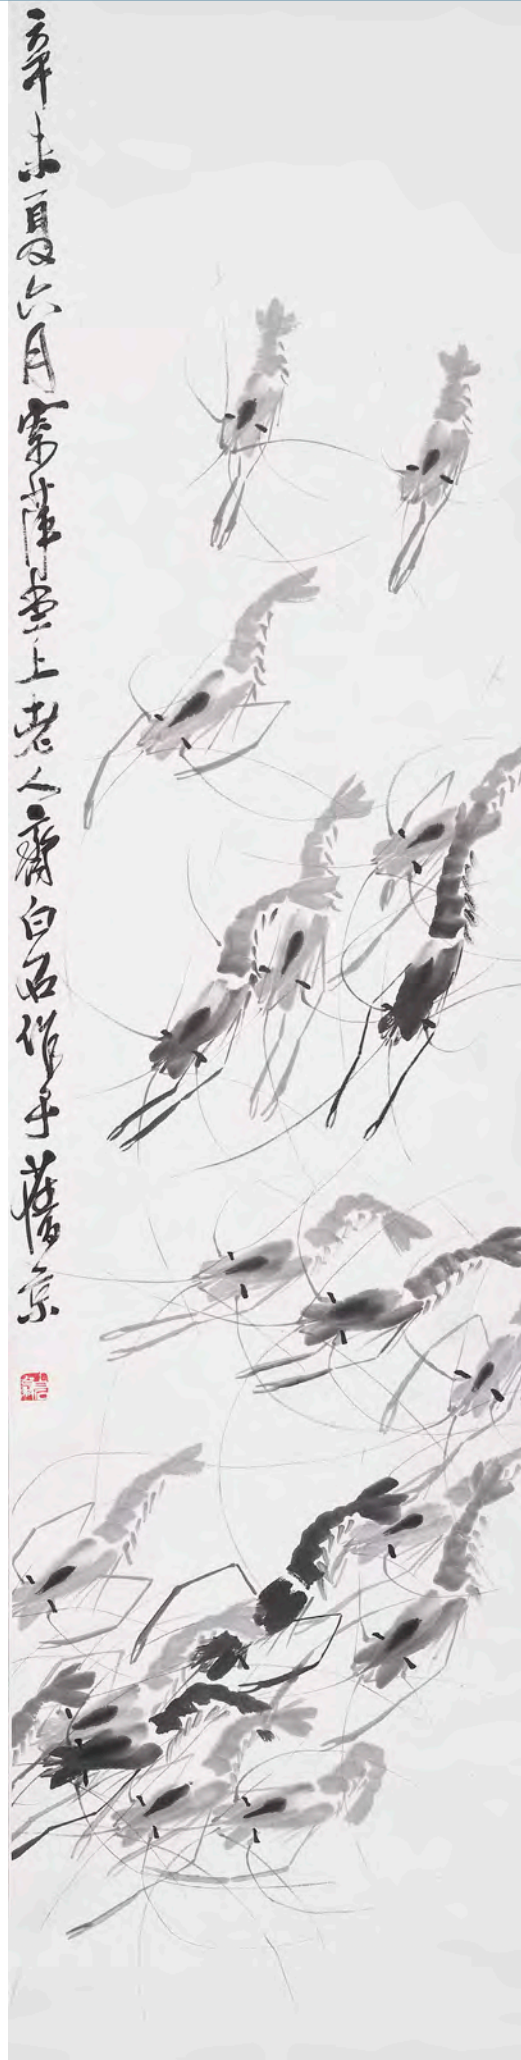 辛未夏六月寄萍堂上老人齊白石作于舊京